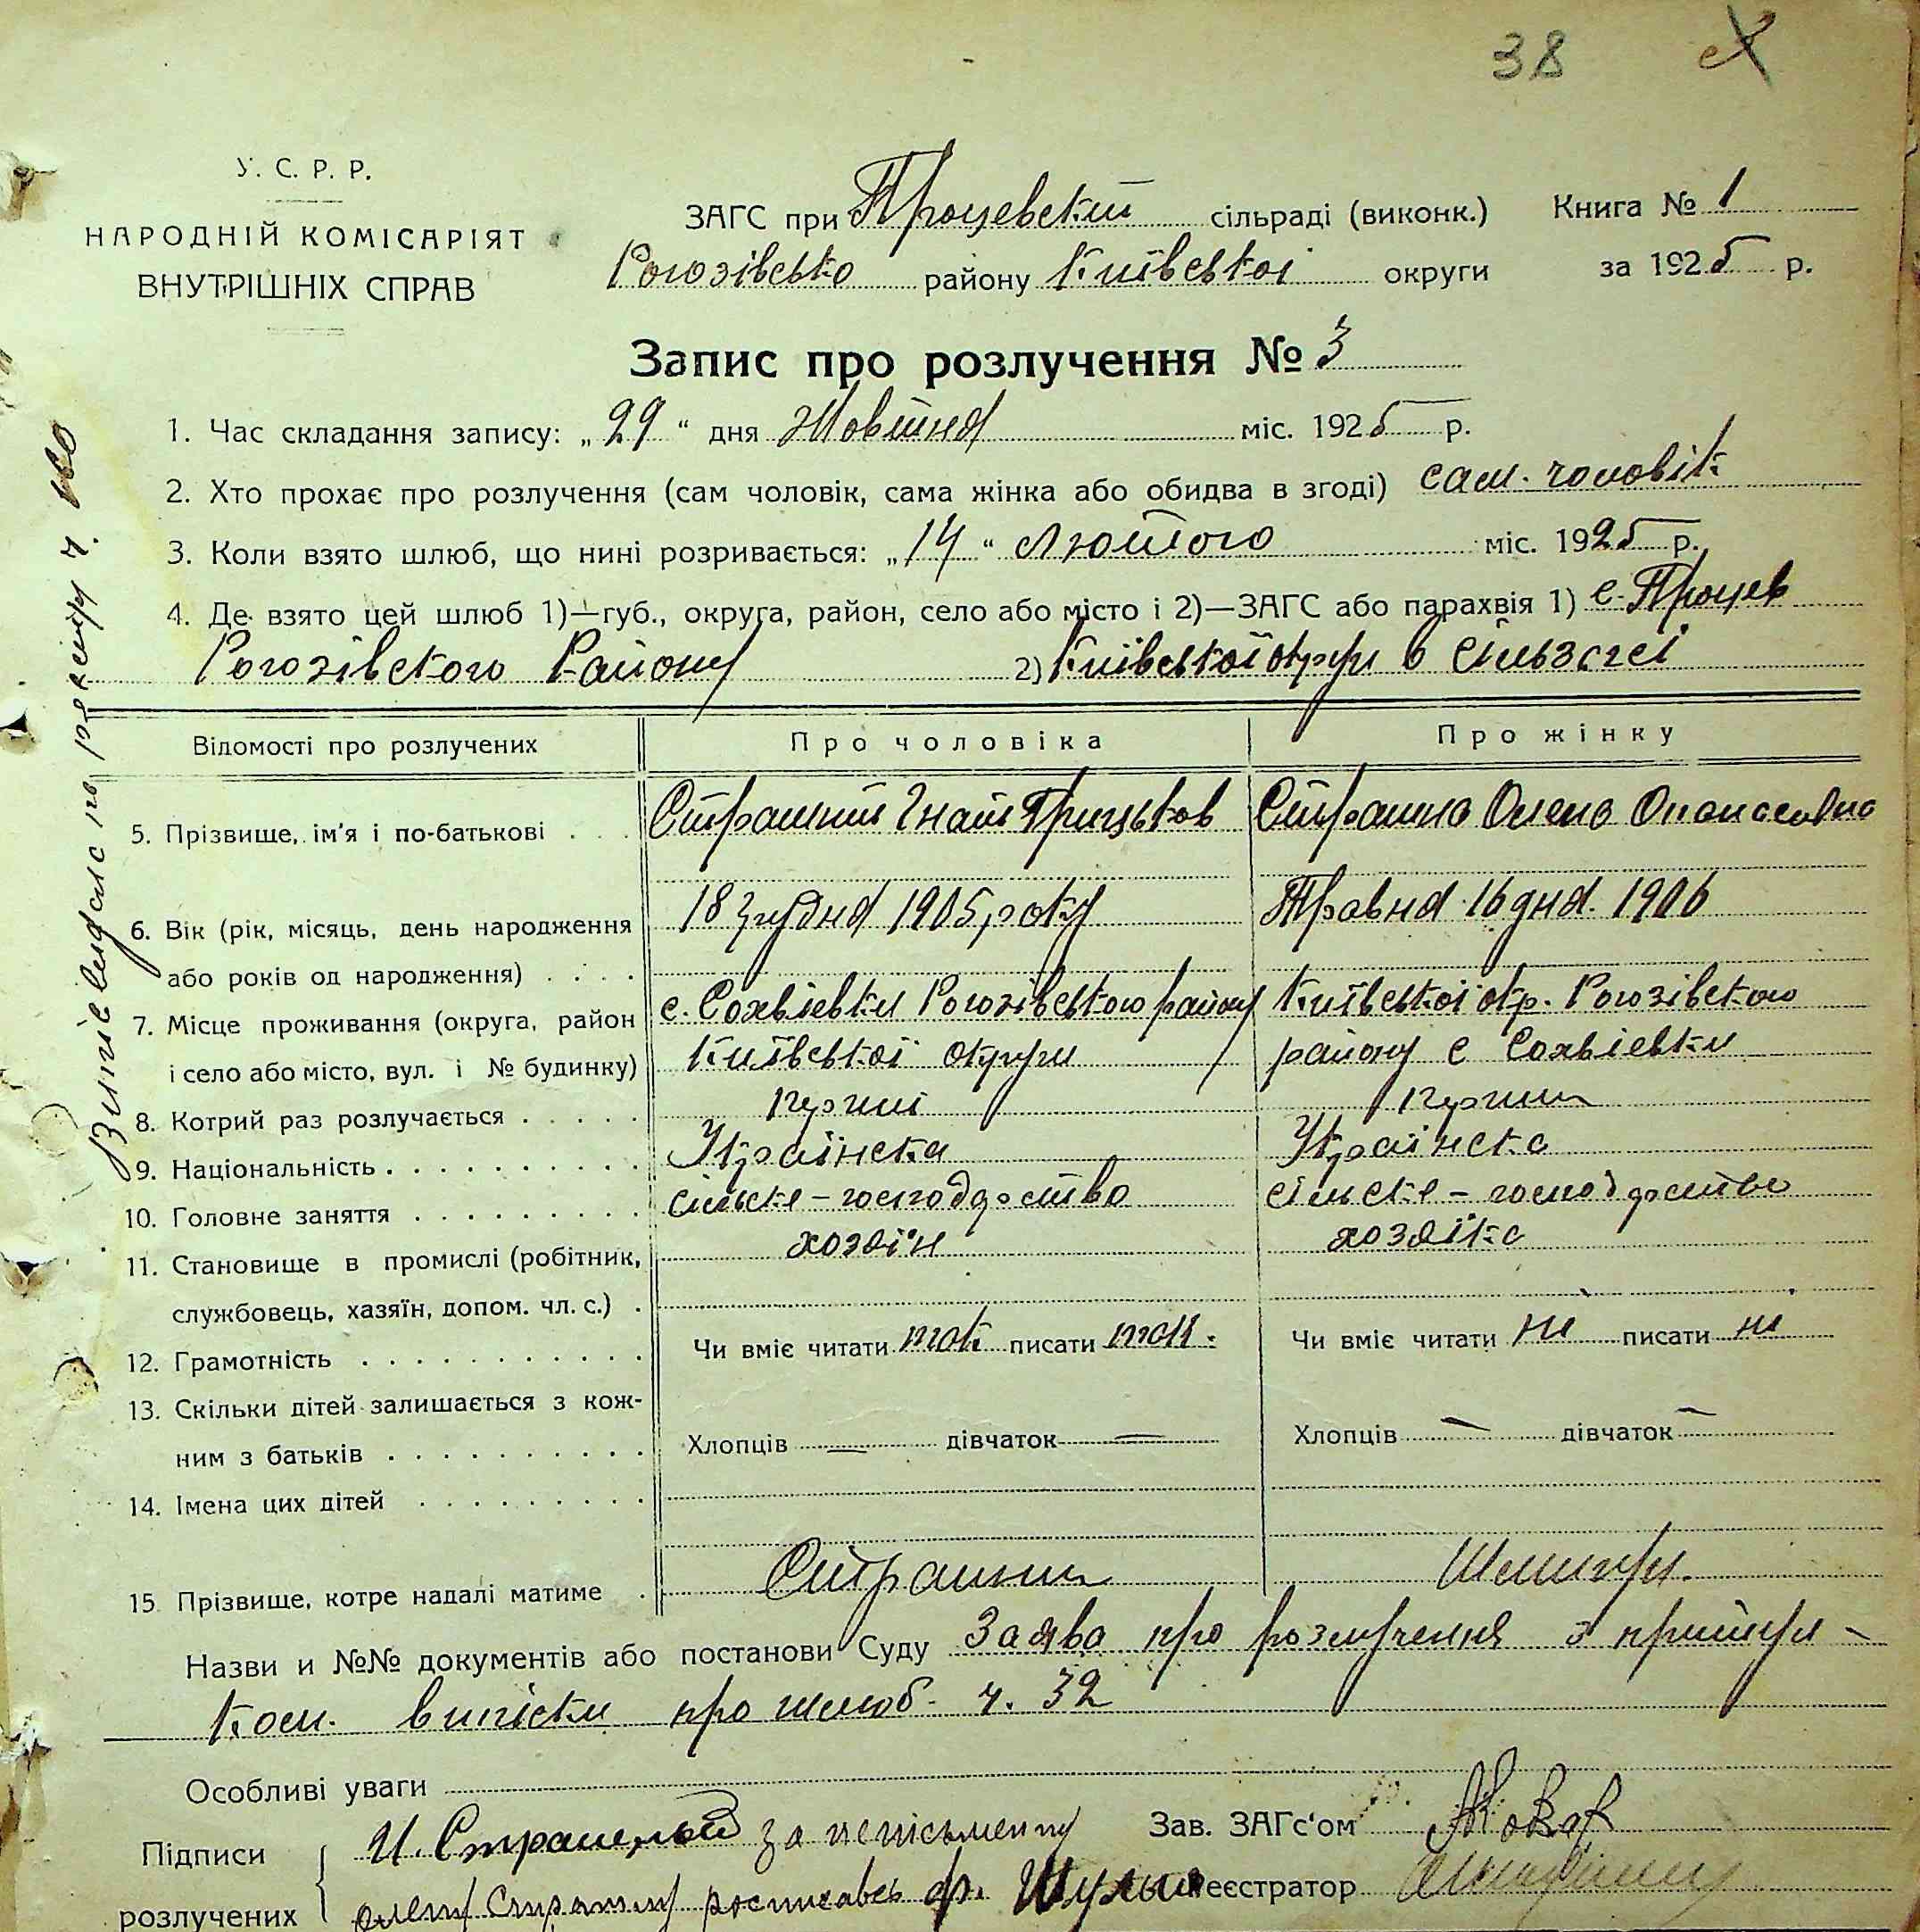 38
У. С. Р. Р.
НАРОДНІЙ КОМІСАРІЯТ
ВНУТРІШНІХ СПРАВ
ЗАГС при Процевский сільраді (виконк.) Книга № 1
Рогозівсько району Київської округи за 1925 р.
Запис про розлучення № 3
1. Час складання запису: „29“ дня Жовтня міс. 1925 р.
2. Хто прохає про розлучення (сам чоловік, сама жінка або обидва в згоді) сам. чоловік
3. Коли взято шлюб, що нині розривається: „14“ Лютого міс. 1925 р.
4. Де взято цей шлюб 1)—губ., округа, район, село або місто і 2)—ЗАГС або парахвія 1) с. Процев
Рогозівского Району 2) Київської окруи в сільзагсі
Відомості про розлучених Про чоловіка Про жінку
5. Прізвище, ім'я і по-батькові Страшний Гнат Грицьков Страшна Олена Опанасовна
6. Вік (рік, місяць, день народження 18 грудня 1905 року Травня 16 дня. 1906
або років од народження)
7. Місце проживання (округа, район с. Сохвіевки Рогозівського району Київської окр. Рогозівского
і село або місто, вул. і № будинку) Київської округи району с Сохвіевки
8. Котрий раз розлучається перший
9. Національність Українска Українска
10. Головне заняття сільске-господарство сільске-господарство
11. Становище в промислі (робітник, хозяін хозяйка
службовець, хазяїн, допом. чл. с.)
12. Грамотність Чи вміє читати так писати так. Чи вміє читати ні писати ні
13. Скільки дітей залишається з кож-
ним з батьків Хлопців — дівчаток — Хлопців — дівчаток —
14. Імена цих дітей
15 Прізвище, котре надалі матиме Страшний
Назви и №№ документів або постанови Суду Заява про розлучення з
виписки про шлюб. ч. 32
Особливі уваги
Підписи И. Страшный за неписьменну Зав. ЗАГс'ом
розлучених Олену Страшну росписавсь Реєстратор